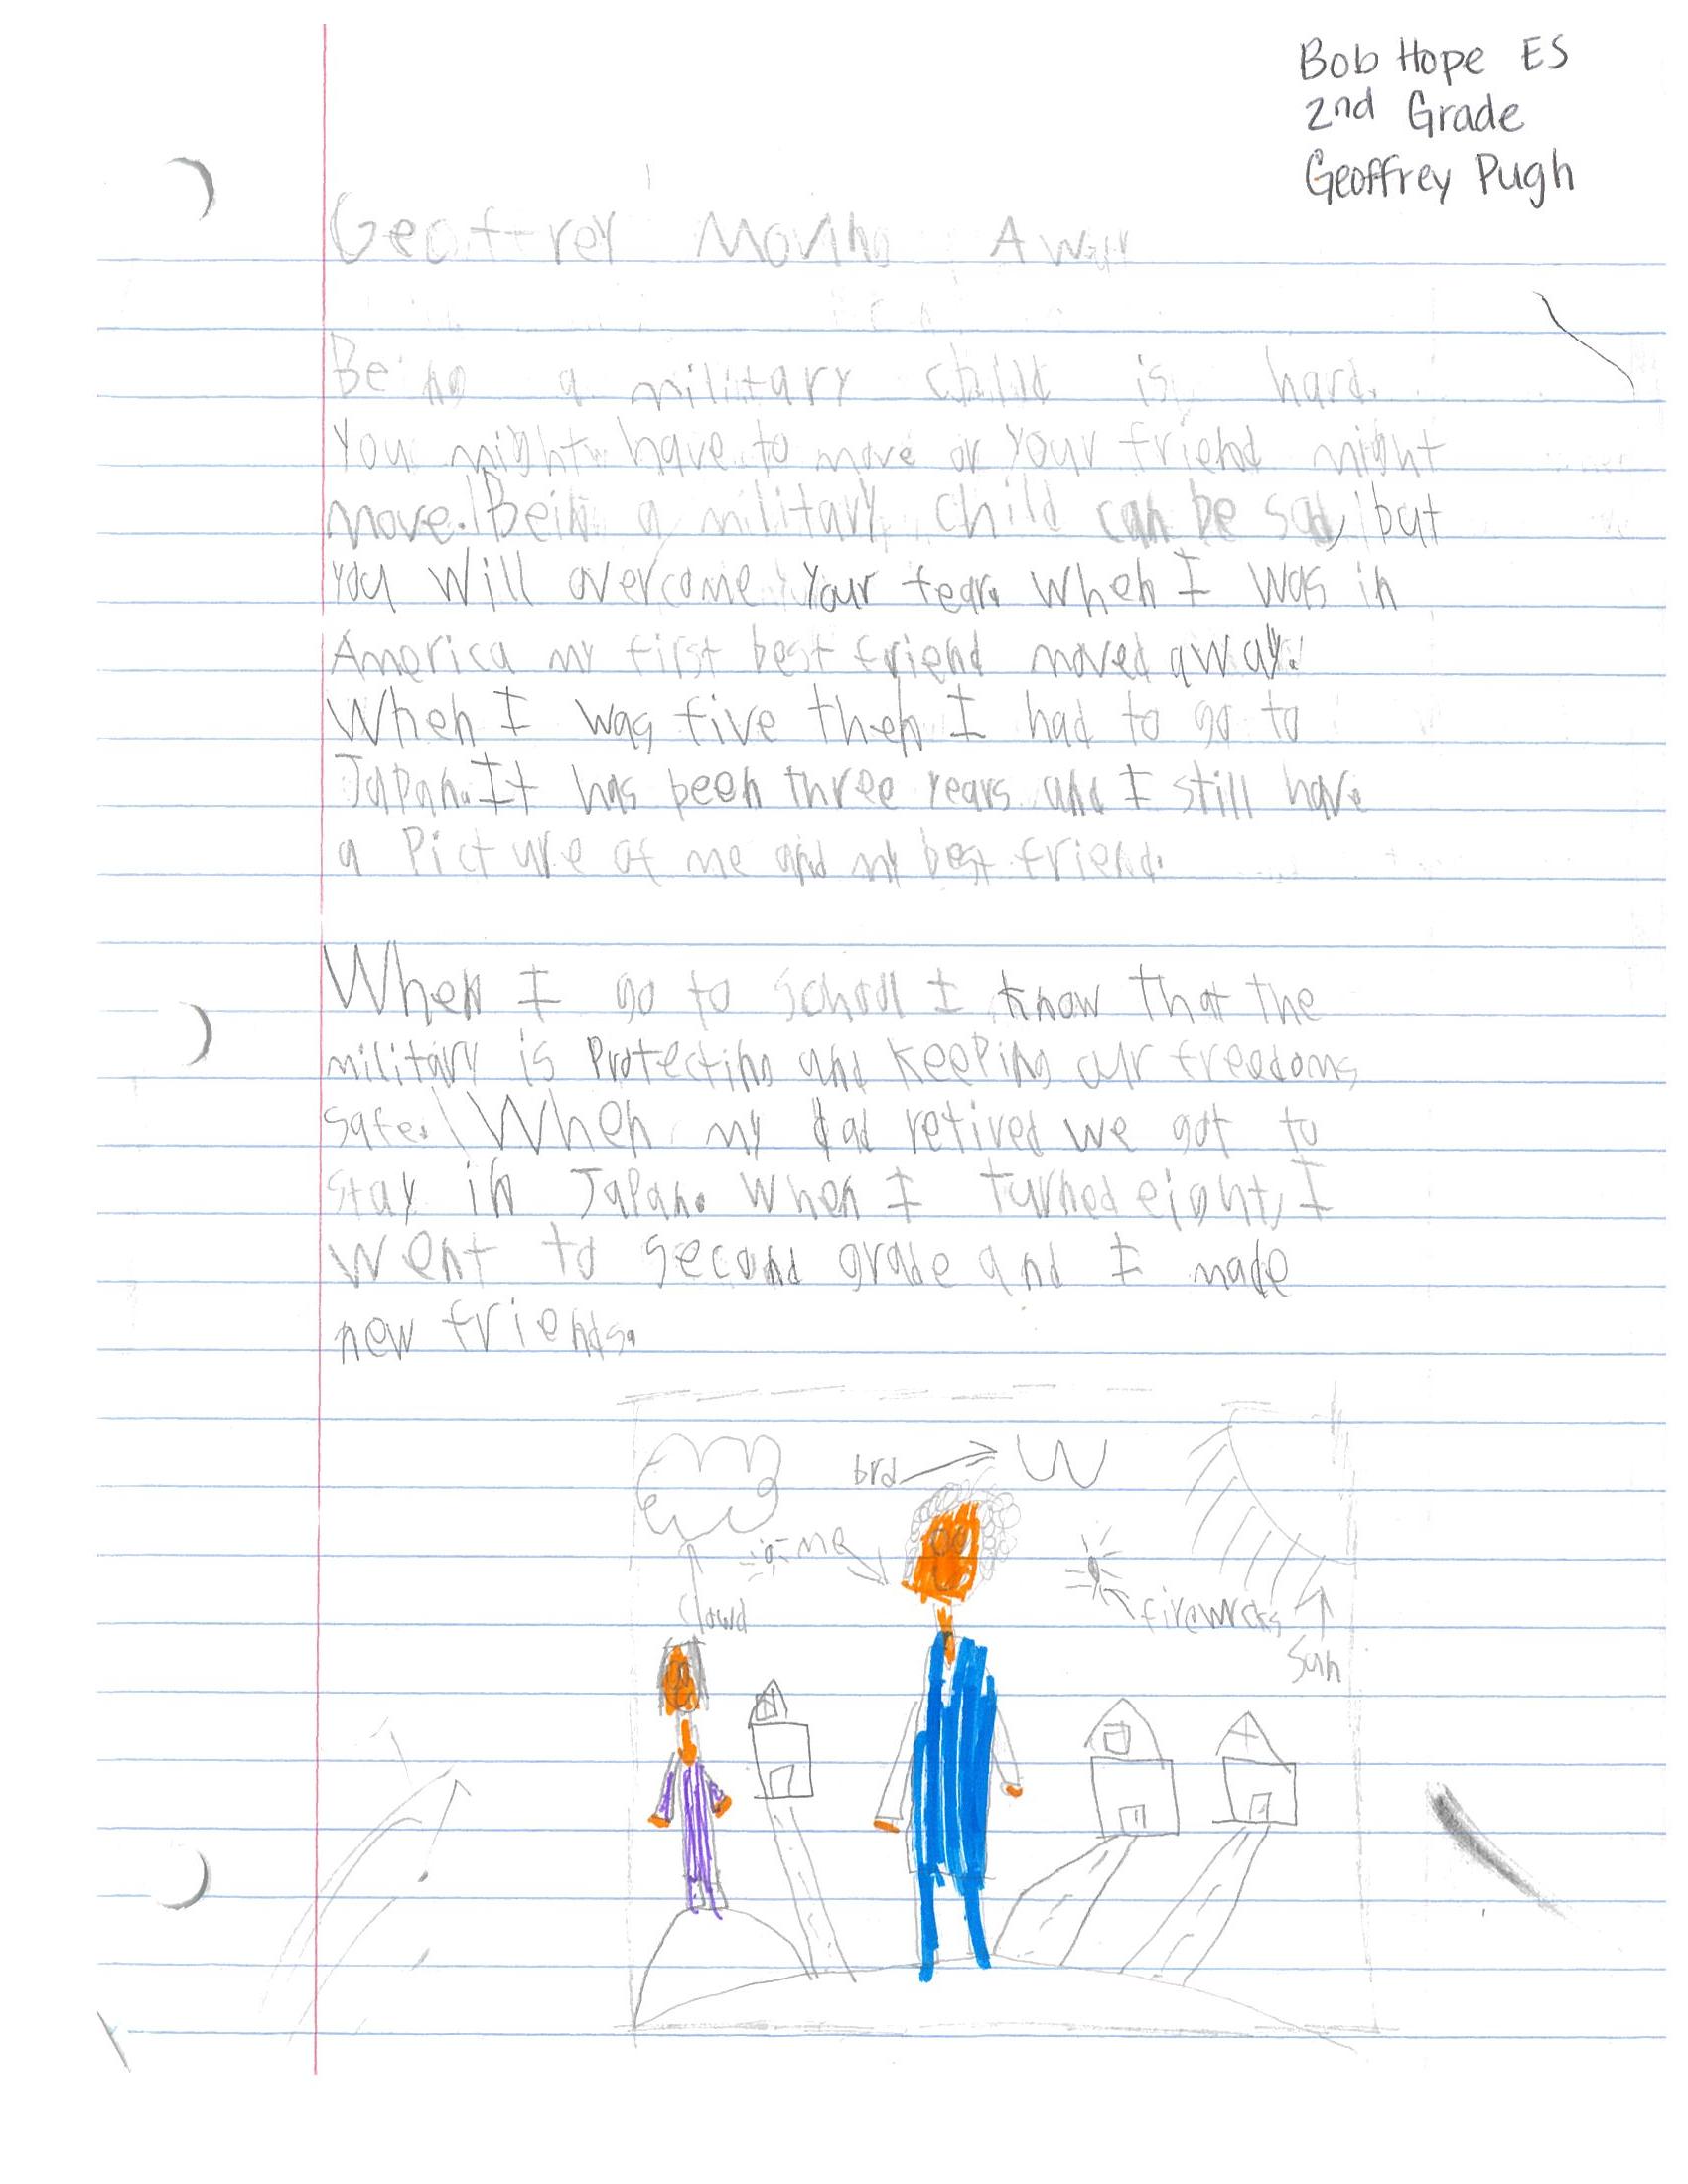 Bob Hope ES
2nd Grade
Geoffrey Pugh
Geoffrey Moving Away
Being a military child is hard.
You might have to move or your friend might
move. Being a military child can be sad, but
you will overcome your fear. When I was in
America my first best friend moved away.
When I was five then I had to go to
Japan. It has been three years and I still have
a Picture of me and my best friend.
When I go to school I know that the
military is Protecting and Keeping our freedoms
safe. When my dad retired we got to
stay in Japan. When I turned eight, I
went to second grade and I made
new friends.
brd
me
clowd
firewrcks
Sun